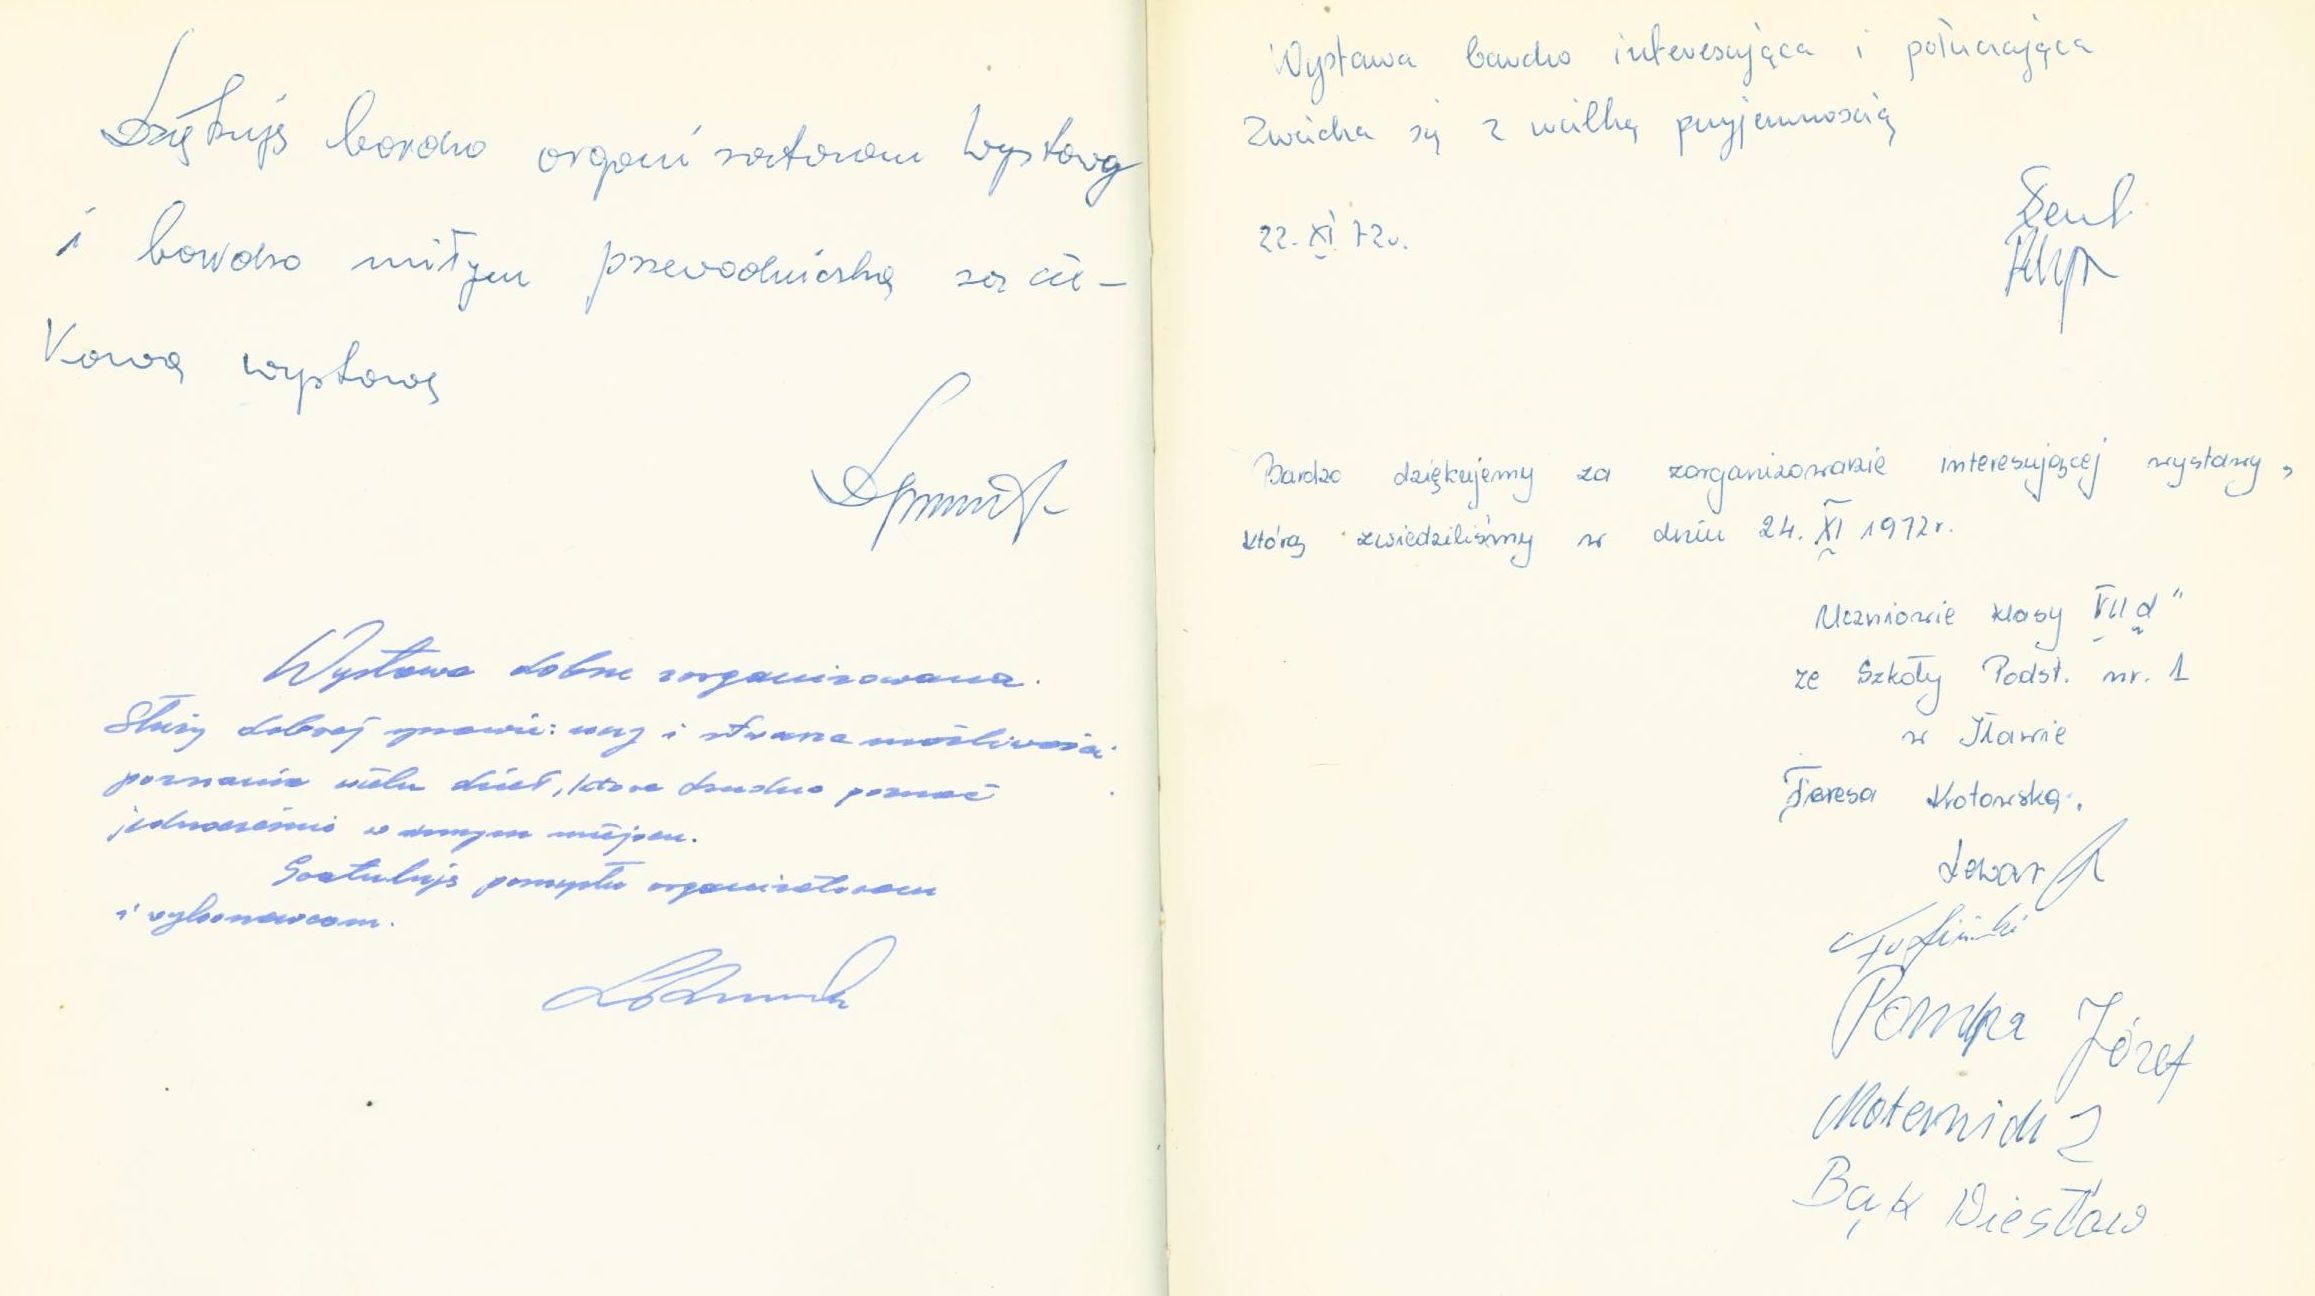 Dziękuję bardzo organizatorom wystawy
i bardzo miłym przewodniczką za cie-
kawą wystawę
Wystawa dobrze zorganizowana.
Służy dobrej sprawie: uczy i stwarza możliwości
poznania wielu dzieł, które trudno poznać
jednocześnie w innym miejscu.
Gratuluję pomysłu organizatorom
i wykonawcom.
Wystawa bardzo interesująca i pouczająca
Zwiedza się z wielką przyjemnością
22. XI. 72r.
Bardzo dziękujemy za zorganizowanie interesującej wystawy,
którą zwiedziliśmy w dniu 24. XI 1972r.
Uczniowie klasy VII d"
ze Szkoły Podst. nr. 1
w Iławie
Teresa Krotowska.
Pompa Józef
Maternicki Z
Bąk Wiesław